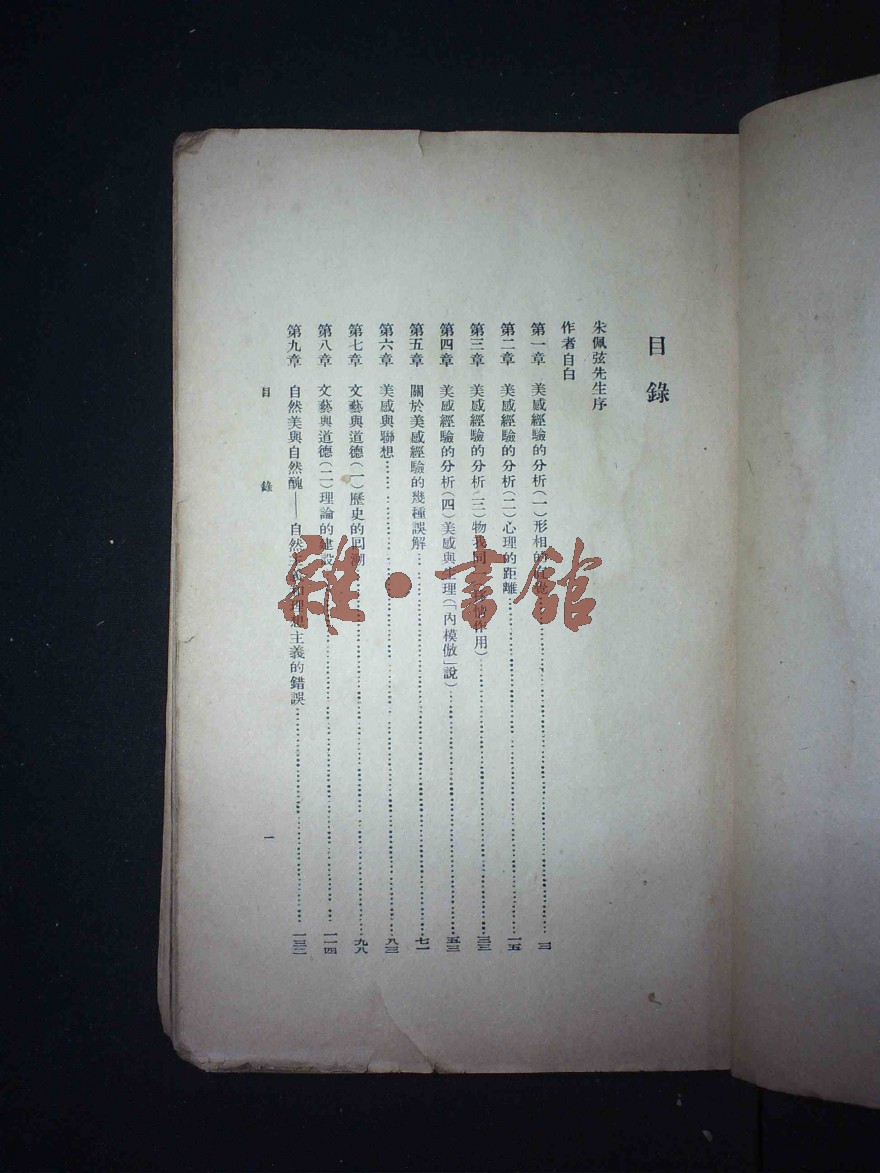 目錄
朱佩弦先生序
作者自白
第一章 美感經驗的分析(一)形相的直覺……三
第二章 美感經驗的分析(二)心理的距離……一五
第三章 美感經驗的分析(三)物我同一(移情作用)……三三
第四章 美感經驗的分析(四)美感與生理(「內模倣」說)……五三
第五章 關於美感經驗的幾種誤解……七一
第六章 美感與聯想……八三
第七章 文藝與道德(一)歷史的回溯……九八
第八章 文藝與道德(二)理論的建設……一一四
第九章 自然美與自然醜——自然主義和理想主義的錯誤……一三二
目錄 一
雜·書館